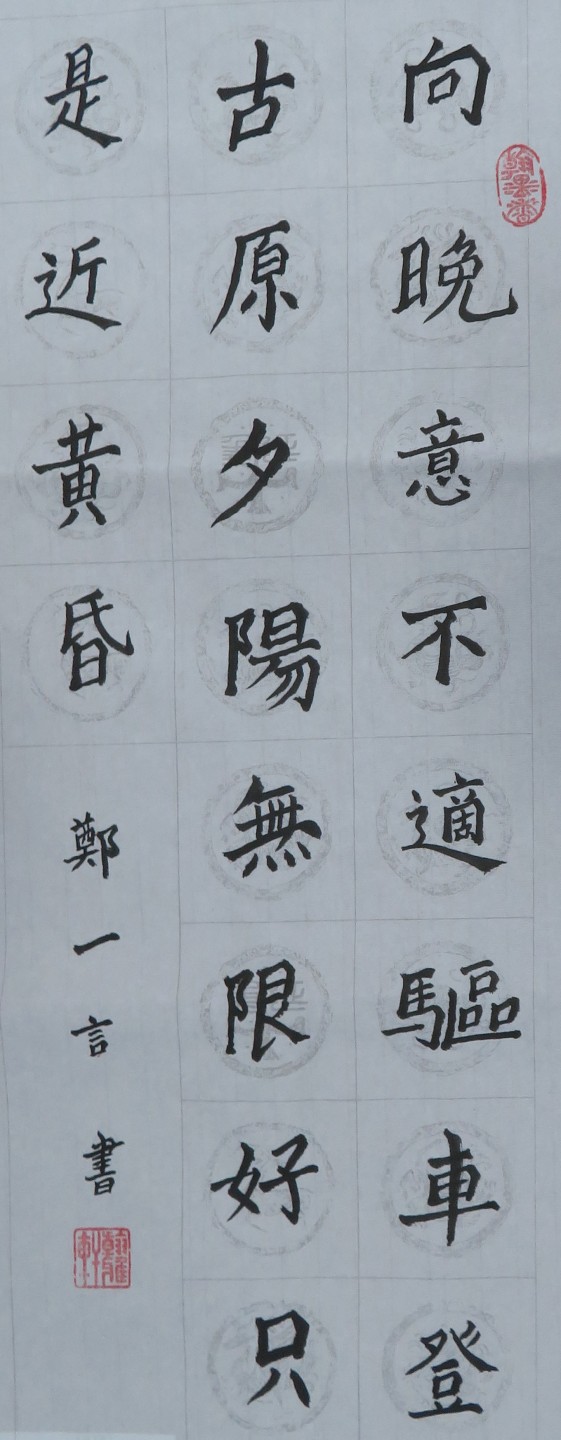 向晚意不適驅車登
古原夕陽無限好只
是近黃昏
鄭一言書
翰墨香